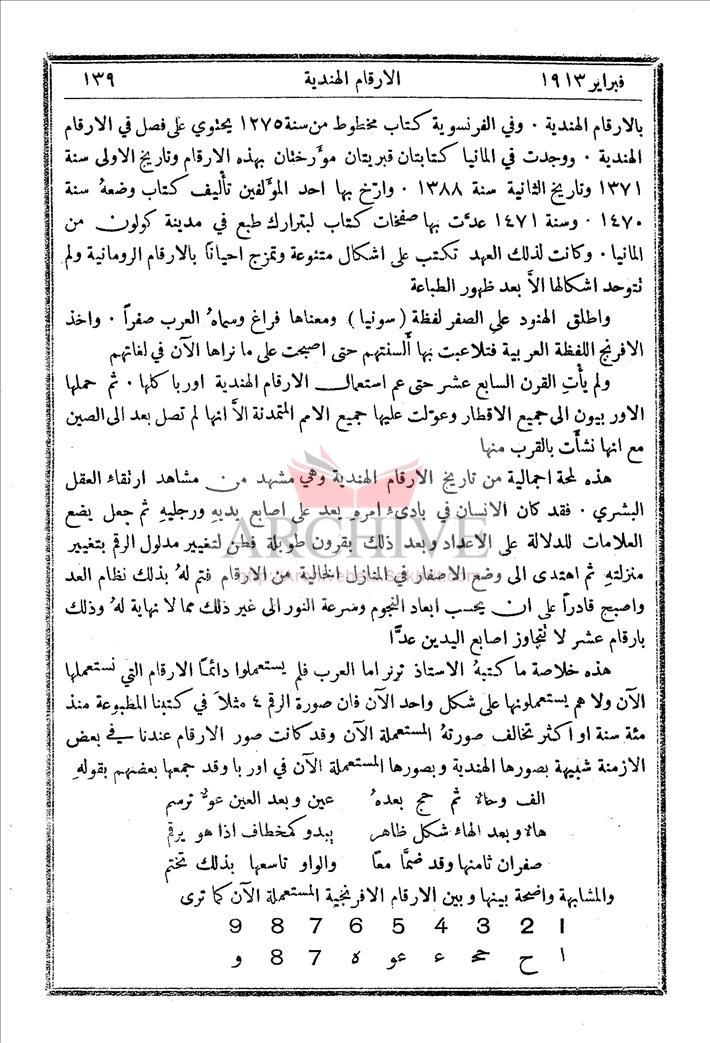 فبراير ١٩١٣ الارقام الهندية ١٣٩
بالارقام الهندية ٠ وفي الفرنسوية كتاب مخطوط من سنة ١٢٧٥ يحتوي على فصل في الارقام
الهندية ٠ ووجدت في المانيا كتابتان قبريتان مؤرختان بهذه الارقام وتاريخ الاولى سنة
١٣٧١ وتاريخ الثانية سنة ١٣٨٨ ٠ وارّخ بها احد المؤلفين تأليف كتاب وضعهُ سنة
١٤٧٠ ٠ وسنة ١٤٧١ عدَّت بها صفحات كتاب لبترارك طبع في مدينة كولون من
المانيا ٠ وكانت لذلك العهد تكتب على اشكال متنوعة وتمزج احيانًا بالارقام الرومانية ولم
تتوحد اشكالها الاَّ بعد ظهور الطباعة
واطلق الهنود على الصفر لفظة (سونيا) ومعناها فراغ وسماهُ العرب صفراً ٠ واخذ
الافرنج اللفظة العربية فتلاعبت بها أَلسنتهم حتى اصبحت على ما نراها الآن في لغاتهم
ولم يأْتِ القرن السابع عشر حتى عم استعمال الارقام الهندية اوربا كلها ٠ ثم حملها
الاوربيون الى جميع الاقطار وعوّلت عليها جميع الامم المتمدنة الاَّ انها لم تصل بعد الى الصين
مع انها نشأَت بالقرب منها
هذه لمحة اجمالية من تاريخ الارقام الهندية وهي مشهد من مشاهد ارتقاء العقل
البشري ٠ فقد كان الانسان في بادىء امرهِ يعد على اصابع يديهِ ورجليهِ ثم جعل يضع
العلامات للدلالة على الاعداد وبعد ذلك بقرون طويلة فطن لتغيير مدلول الرقم بتغيير
منزلتهِ ثم اهتدى الى وضع الاصفار في المنازل الخالية من الارقام فتم لهُ بذلك نظام العد
واصبح قادراً على ان يحسب ابعاد النجوم وسرعة النور الى غير ذلك مما لا نهاية لهُ وذلك
بارقام عشر لا تتجاوز اصابع اليدين عدًّا
هذه خلاصة ما كتبهُ الاستاذ تونر اما العرب فلم يستعملوا دائمًا الارقام التي نستعملها
الآن ولا هم يستعملونها على شكل واحد الآن فان صورة الرقم ٤ مثلاً في كتبنا المطبوعة منذ
مئة سنة او اكثر تخالف صورتهُ المستعملة الآن وقد كانت صور الارقام عندنا في بعض
الازمنة شبيهة بصورها الهندية وبصورها المستعملة الآن في اوربا وقد جمعها بعضهم بقولهِ
الف وحاء ثم حج بعدهُ عين وبعد العين عوٌ ترسم
هاء وبعد الهاء شكل ظاهر يبدو كمخطاف اذا هو يرقم
صفران ثامنها وقد ضمَّا معًا والواو تاسعها بذلك تختم
والمشابهة واضحة بينها وبين الارقام الافرنجية المستعملة الآن كما ترى
9 8 7 6 5 4 3 2 1
ا ح حج ع عو ه 7 8 و
ARCHIVE